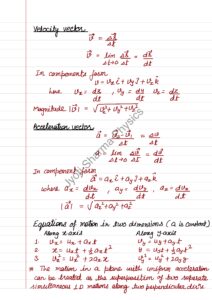 Velocity vector
v⃗ = Δr⃗/Δt
v⃗ = lim Δt→0 Δr⃗/Δt = dr⃗/dt
In component form
v = vₓ î + vᵧ ĵ + v_z k̂
here vₓ = dx/dt , vᵧ = dy/dt , v_z = dz/dt
Magnitude |v⃗| = √(vₓ² + vᵧ² + v_z²)
Acceleration vector
a⃗ = Δv⃗/Δt
a⃗ = lim Δt→0 Δv⃗/Δt = dv⃗/dt
In component form
a⃗ = aₓ î + aᵧ ĵ + a_z k̂
where aₓ = dvₓ/dt , aᵧ = dvᵧ/dt , a_z = dv_z/dt
|a⃗| = √(aₓ² + aᵧ² + a_z²)
Equations of motion in two dimensions (a is constant)
Along x axis Along y axis
1 vₓ = uₓ + aₓt vᵧ = uᵧ + aᵧt
2 x = uₓt + ½ aₓt² y = uᵧt + ½ aᵧt²
3 vₓ² = uₓ² + 2aₓx vᵧ² = uᵧ² + 2aᵧy
* The motion in a plane with uniform acceleration
can be treated as the superposition of two separate
simultaneous 1D motions along two perpendicular dirxⁿ